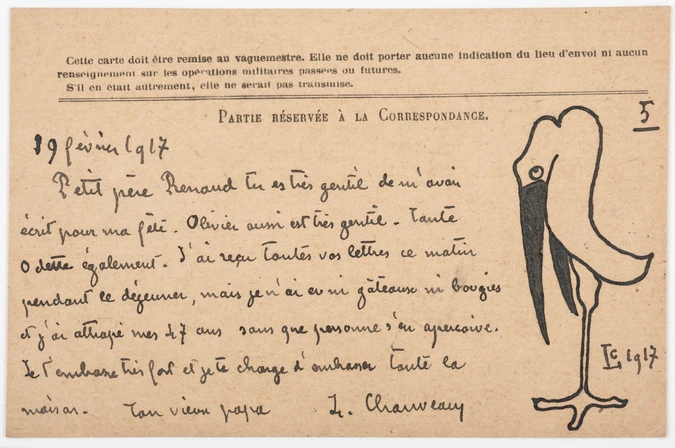 Cette carte doit être remise au vaguemestre. Elle ne doit porter aucune indication du lieu d'envoi ni aucun
renseignement sur les opérations militaires passées ou futures.
S'il en était autrement, elle ne serait pas transmise.
PARTIE RÉSERVÉE À LA CORRESPONDANCE.
5
19 février 1917
Petit père Renaud tu es très gentil de m'avoir
écrit pour ma fête. Olivier aussi est très gentil - tante
Odette également. J'ai reçu toutes vos lettres ce matin
pendant le déjeuner, mais je n'ai eu ni gâteaux ni bougies
et j'ai attrapé mes 47 ans sans que personne s'en aperçoive.
Je t'embrasse très fort et je te charge d'embrasser toute la
maison. Ton vieux papa L. Chauveau
LC 1917